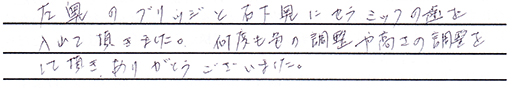 左奥のブリッジと右下奥にセラミックの歯を
入れて頂きました。何度も色の調整や高さの調整を
して頂き、ありがとうございました。